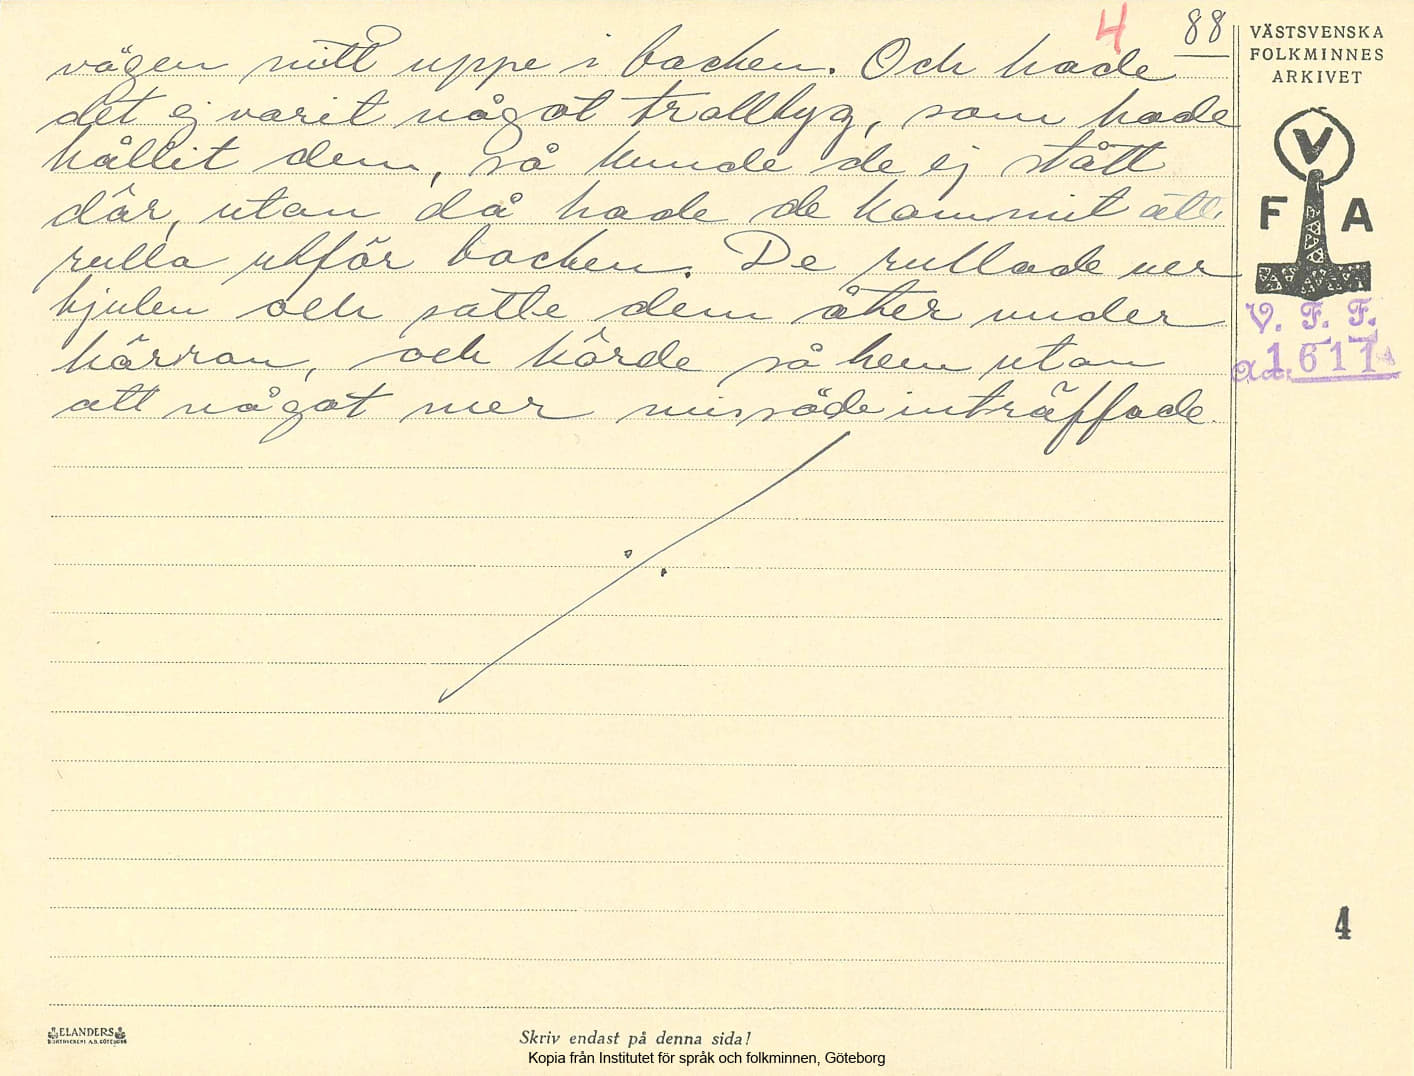 4 88
VÄSTSVENSKA
FOLKMINNES
ARKIVET
vägen mitt uppe i backen. Och hade
det ej varit något trolltyg, som hade
hållit dem, så kunde de ej stått
där, utan då hade de kommit att
rulla utför backen. De rullade ner
hjulen och satte dem åter under
kärran, och körde så hem utan
att något mer missöde inträffade.
V
F A
V. F. F.
1611
4
ELANDERS
BOKTRYCKERI A.B. GÖTEBORG
Skriv endast på denna sida!
Kopia från Institutet för språk och folkminnen, Göteborg